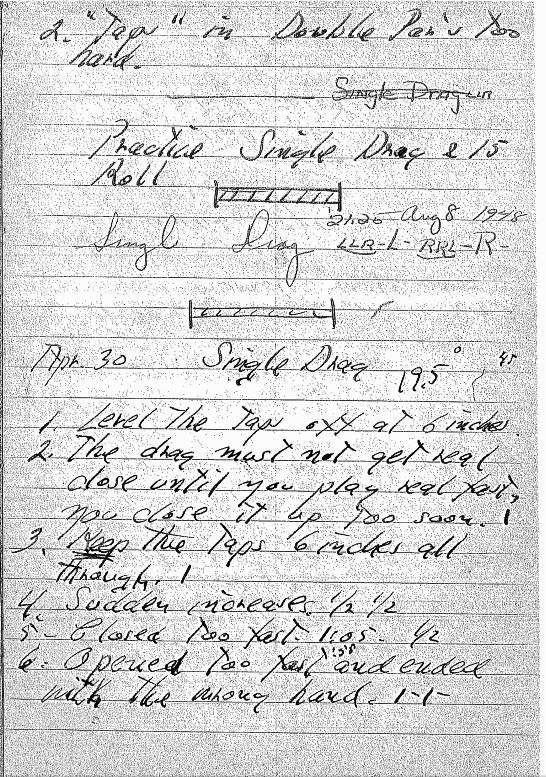 2. "Taps" in Double Par's too
hard.
Single Drag
Practice Single Drag & 15
Roll
Aug 8 1948
Singl Drag LLR-L-RRL-R-
Apr. 30 Single Drag 19.5° 45
1. Level The Taps off at 6 inches.
2. The drag must not get real
close until you play real fast,
you close it up too soon. 1
3. Keep the Taps 6 inches all
through. 1
4 Sudden increases. 1/2 1/2
5- Closed Too fast- 1:05- 1/2
6. Opened Too fast and ended
with the wrong hand. 1-1-